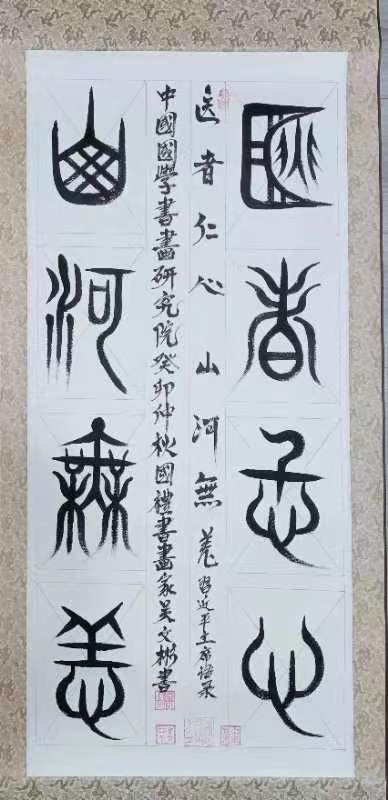 医者仁心
医者仁心山河無恙習近平主席語录
中國國學書畫研究院癸卯仲秋國禮書畫家吴文彬書
山河無恙